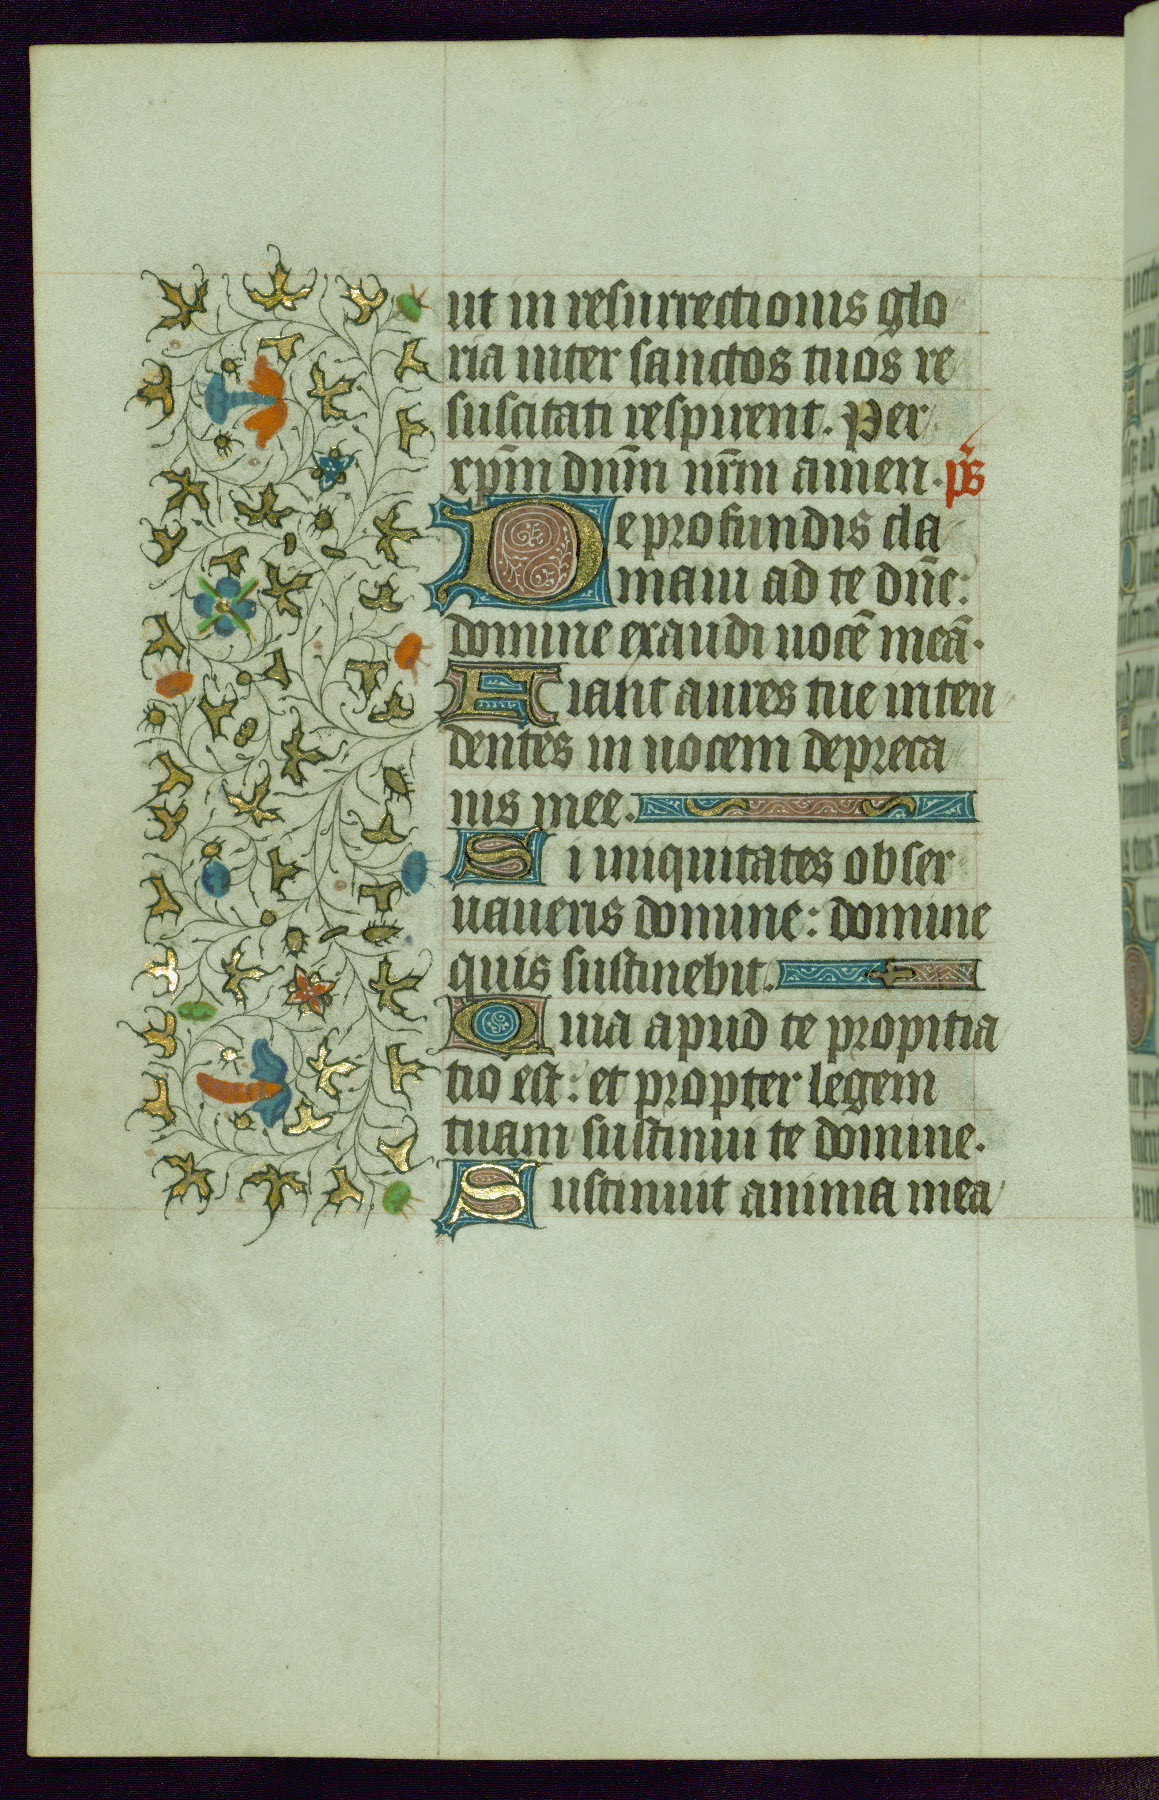 ut in resurrectionis glo
ria inter sanctos tuos re
suscitati respirent. Per
xp̄m dn̄m nr̄m amen. ps̄
De profundis cla
maui ad te dn̄e:
domine exaudi uocē meā.
Fiant aures tue inten
dentes in uocem depreca
nis mee.
Si iniquitates obser
uaueris domine: domine
quis sustinebit.
Quia apud te propitia
tio est: et propter legem
tuam sustinui te domine.
Sustinuit anima mea